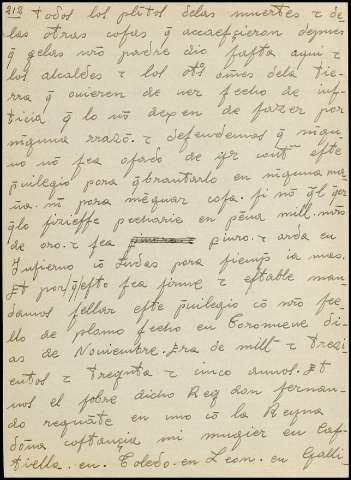 212 todos los pleitos delas muertes τ de
las otras cosas q̄ acaesçieron depues
q̄ gelas nr̄o padre dio fasta aqui τ
los alcaldes τ los ot͂s om̄es dela tie-
rra q̄ ouieren de ver fecho de ius-
tiçia q̄ lo nō dexen de fazer por
ninguna rrazō. τ defendemos q̄ nigu-
no nō sea osado de yr cont͂ este
p̄uilegio pora q̄brantarlo en ninguna ma-
n̄a. nī pora mēguar cosa. si nō q͂l q͂er
q͂lo fiziesse pecharie en pēna mill. mr̄s
de oro. τ sea piuro. τ arda en
Infierno cō Iudas pora siemp͂ ia mas.
Et por q̄ esto sea firme τ estable man-
damos sellar este p̄uilegio cō nr̄o see-
llo de plomo fecho en Toronueve di-
as de Noviembre. Era de mill τ trezi
entos τ treynta τ cinco annos. Et
nos el sobre dicho Rey don fernan-
do regnāte en uno cō la Reyna
doña costança mi mugier en Cas-
tiella. en. Toledo. en Leon. en Galli-